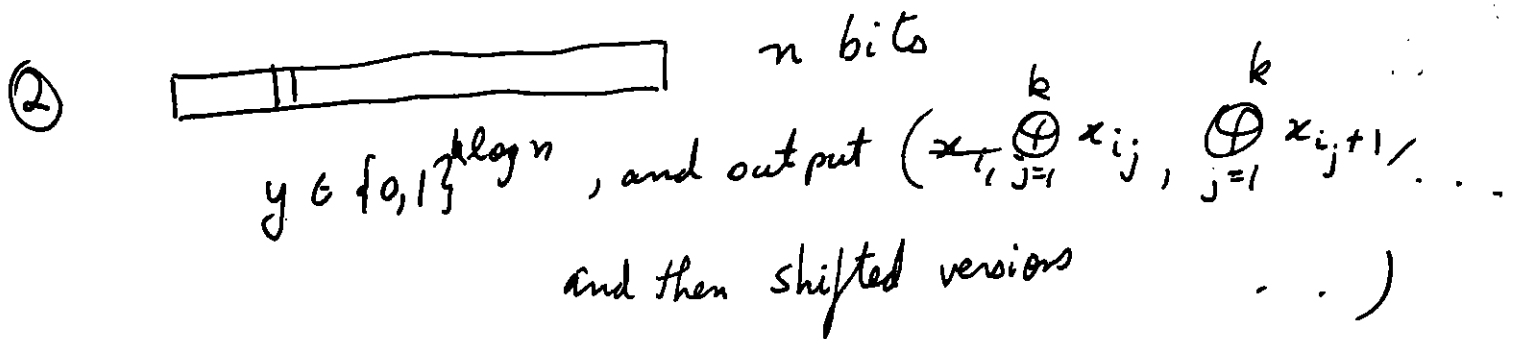 ② n bits
y ∈ {0,1}^{k log n}, and output (⊕_{j=1}^{k} x_{i_j}, ⊕_{j=1}^{k} x_{i_j+1}, . . .
and then shifted versions . . )